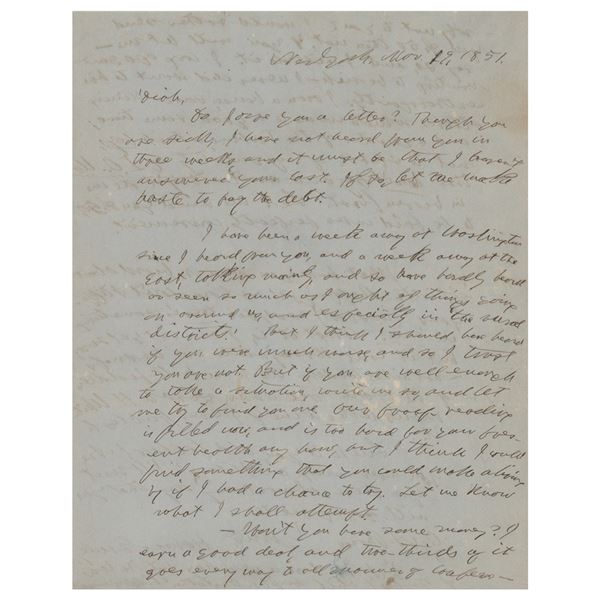 New York, Nov. 19, 1851.
Do I owe you a letter? Though you
are sick, I have not heard from you in
three weeks, and it must be that I haven't
answered your last. If so, let me make
haste to pay the debt.
I have been a week away at Washington
since I heard from you, and a week away at the
East, talking mainly, and so have hardly heard
or seen so much as I ought of things going
on around us, and especially in "the rural
districts." But I think I should have heard
if you were much worse, and so I trust
you are not. But if you are well enough
to take a situation, write me so, and let
me try to find you one. Our proof reading
is filled now, and is too hard for your pres-
ent health any how, but I think I could
find something that you could make a living
by if I had a chance to try. Let me know
what I shall attempt.
— Won't you have some money? I
earn a good deal, and two-thirds of it
goes every way to all manner of